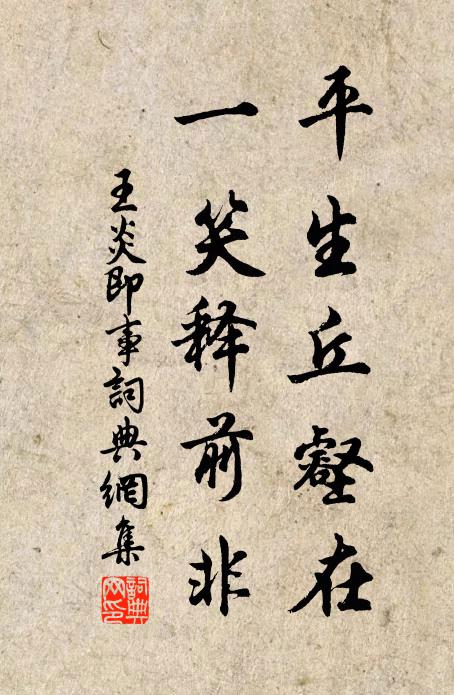 平生丘壑在
一笑释前非
王炎即事詞典網集
詞典网印